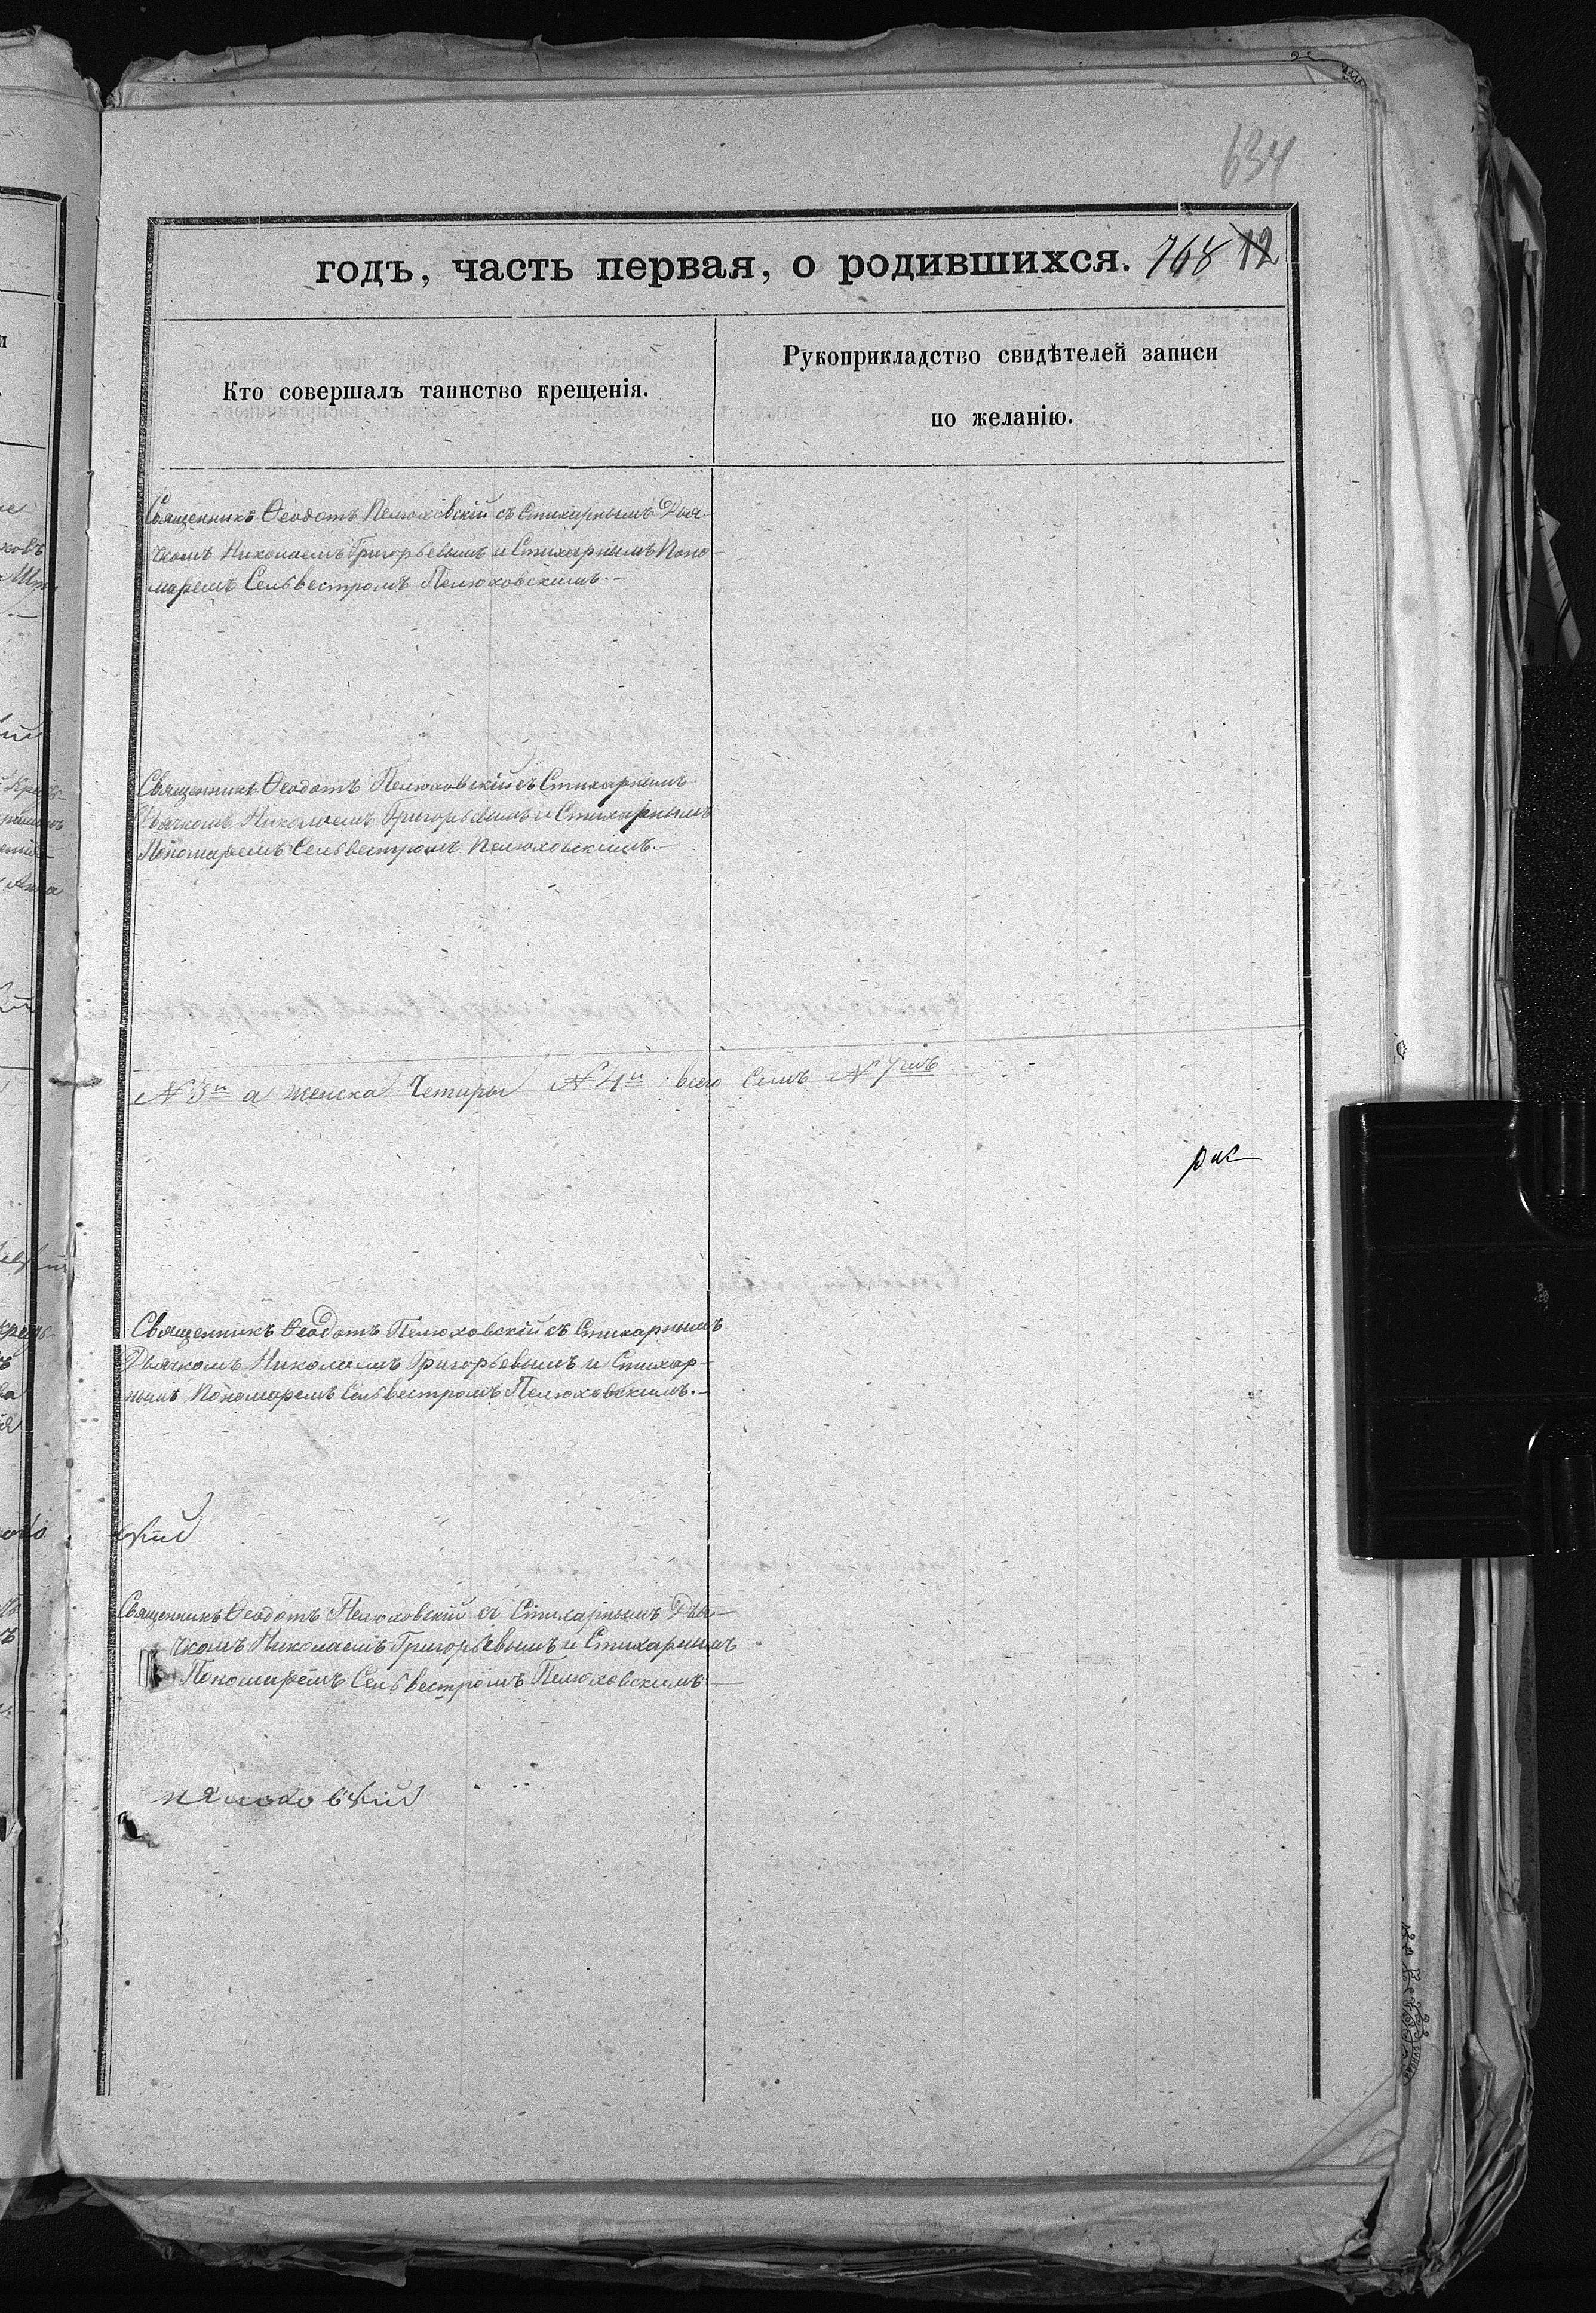 634
годъ, часть первая, о родившихся. 768 12
Кто совершалъ таинство крещенія.
Рукоприкладство свидѣтелей записи
по желанію.
Священникъ Ѳеодотъ Пелюховскій съ Стихарнымъ Дья-
чкомъ Николаемъ Григорьевымъ и Стихарнымъ Поно-
маремъ Сельвестромъ Пелюховскимъ.-
Священникъ Ѳеодотъ Пелюховскій съ Стихарнымъ
Дьячкомъ Николаемъ Григорьевымъ и Стихарнымъ
Пономаремъ Сельвестромъ Пелюховскимъ.-
№ 3и а женска Четыры № 4и всего Семъ № 7мъ
Священникъ Ѳеодотъ Пелюховскій съ Стихарнымъ
Дьячкомъ Николаемъ Григорьевымъ и Стихар-
нымъ Пономаремъ Сельвестромъ Пелюховскимъ.-
вскій
Священникъ Ѳеодотъ Пелюховскій съ Стихарнымъ Дья-
чкомъ Николаемъ Григорьевымъ и Стихарнымъ
Пономаремъ Сельвестромъ Пелюховскимъ-